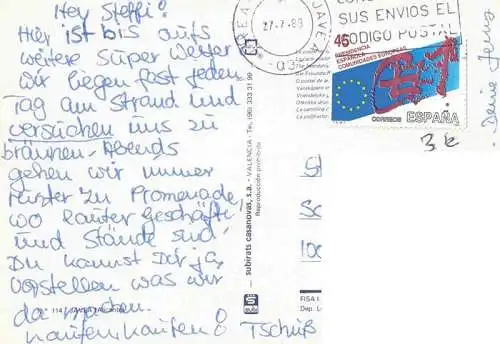 Hey Steffi!
Hier ist bis aufs
weitere super Wetter
wir liegen fast jeden
Tag am Strand und
versuchen uns zu
bräunen. Abends
gehen wir immer
runter zu Promenade,
wo lauter Geschäfte
und Stände sind.
Du kannst Dir ja
vorstellen was wir
da machen.
Kaufen, kaufen! Tschüß
- Deine Jenny
114
subirats casanovas, s.a. - VALENCIA - Tel. (96) 333 31 99
Reproducción prohibida
JAVEA
27-7-89
SUS ENVIOS EL
CODIGO POSTAL
45
PRESIDENCIA
ESPAÑOLA
COMUNIDADES EUROPEAS
CORREOS ESPAÑA
3 €
FISA
Dep. L